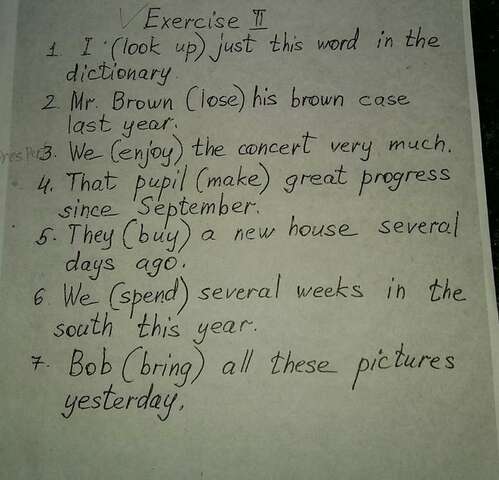 Exercise II
1. I (look up) just this word in the
dictionary.
2. Mr. Brown (lose) his brown case
last year.
3. We (enjoy) the concert very much.
4. That pupil (make) great progress
since September.
5. They (buy) a new house several
days ago.
6. We (spend) several weeks in the
south this year.
7. Bob (bring) all these pictures
yesterday.